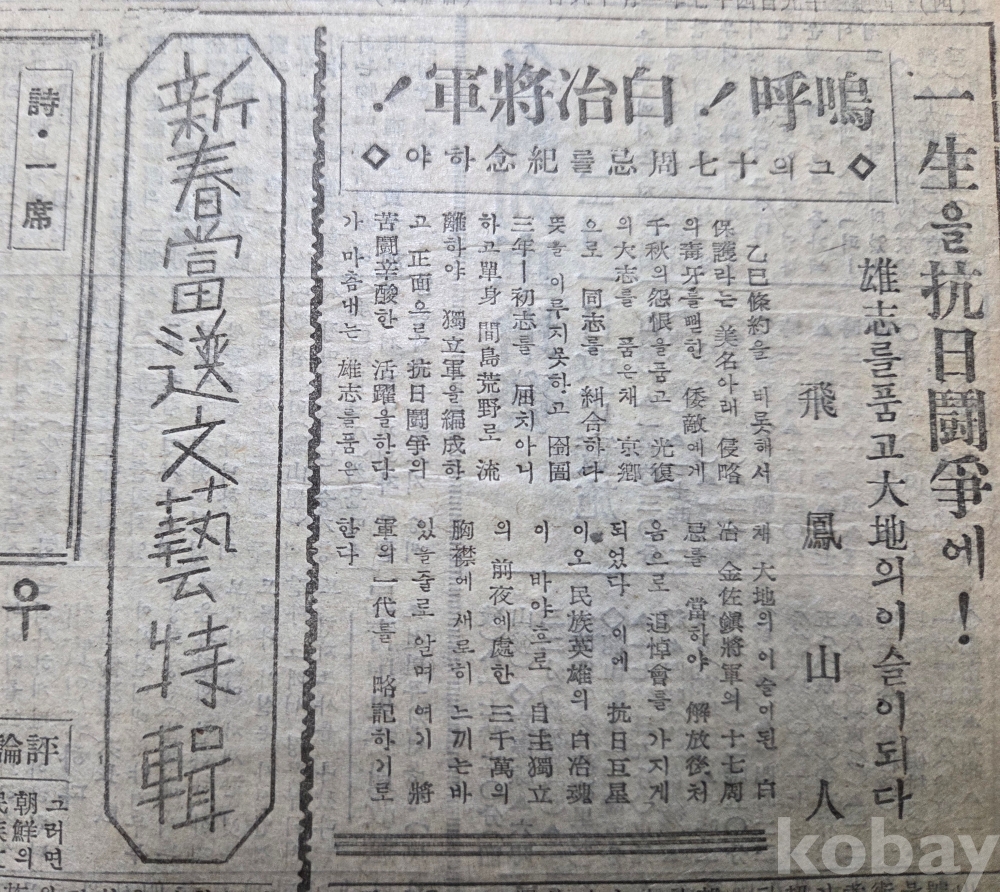 一生을抗日鬪爭에!
雄志를품고大地의이슬이되다
飛鳳山人
嗚呼!白冶將軍!
◇그의十七周忌를紀念하야◇
乙巳條約을 비롯해서
保護라는 美名아래 侵略
의毒牙를뻗한 倭敵에게
千秋의怨恨을품고 光復
의大志를 품은채 京鄕
으로 同志를 糾合하다
뜻을이루지못하고 囹圄
三年―初志를 屈치아니
하고單身 間島荒野로 流
離하야 獨立軍을編成하
고 正面으로 抗日鬪爭의
苦鬪辛酸한 活躍을하다
가 마츰내는 雄志를품은
채 大地의이슬이된 白
冶 金佐鎭將軍의 十七周
忌를 當하야 解放後처
음으로 追悼會를 가지게
되었다 이에 抗日巨星
이오 民族英雄의 白冶魂
이 바야흐로 自主獨立
의 前夜에處한 三千萬의
胸襟에 새로히 느끼는바
있을줄로 알며 여기 將
軍의 一代를 略記하기로
한다
新春當選文藝特輯
詩・一席
우
評論
그러면
朝鮮의
kobay